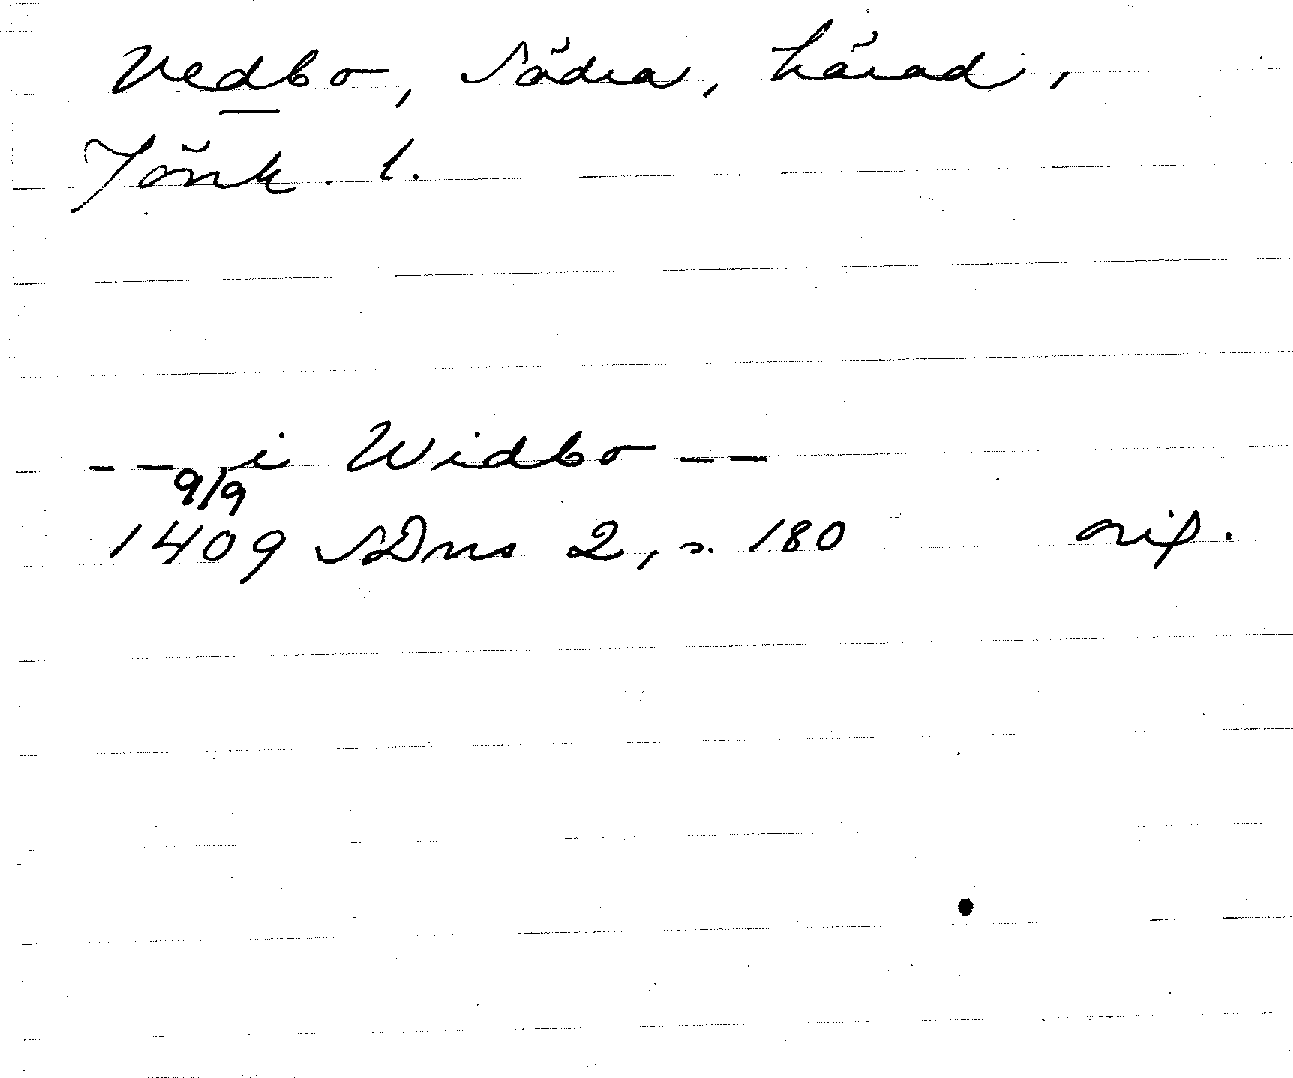 Vedbo, Södra, härad,
Jönk. l.
-- i Widbo --
9/9
1409 SDns 2, s. 180 orig.